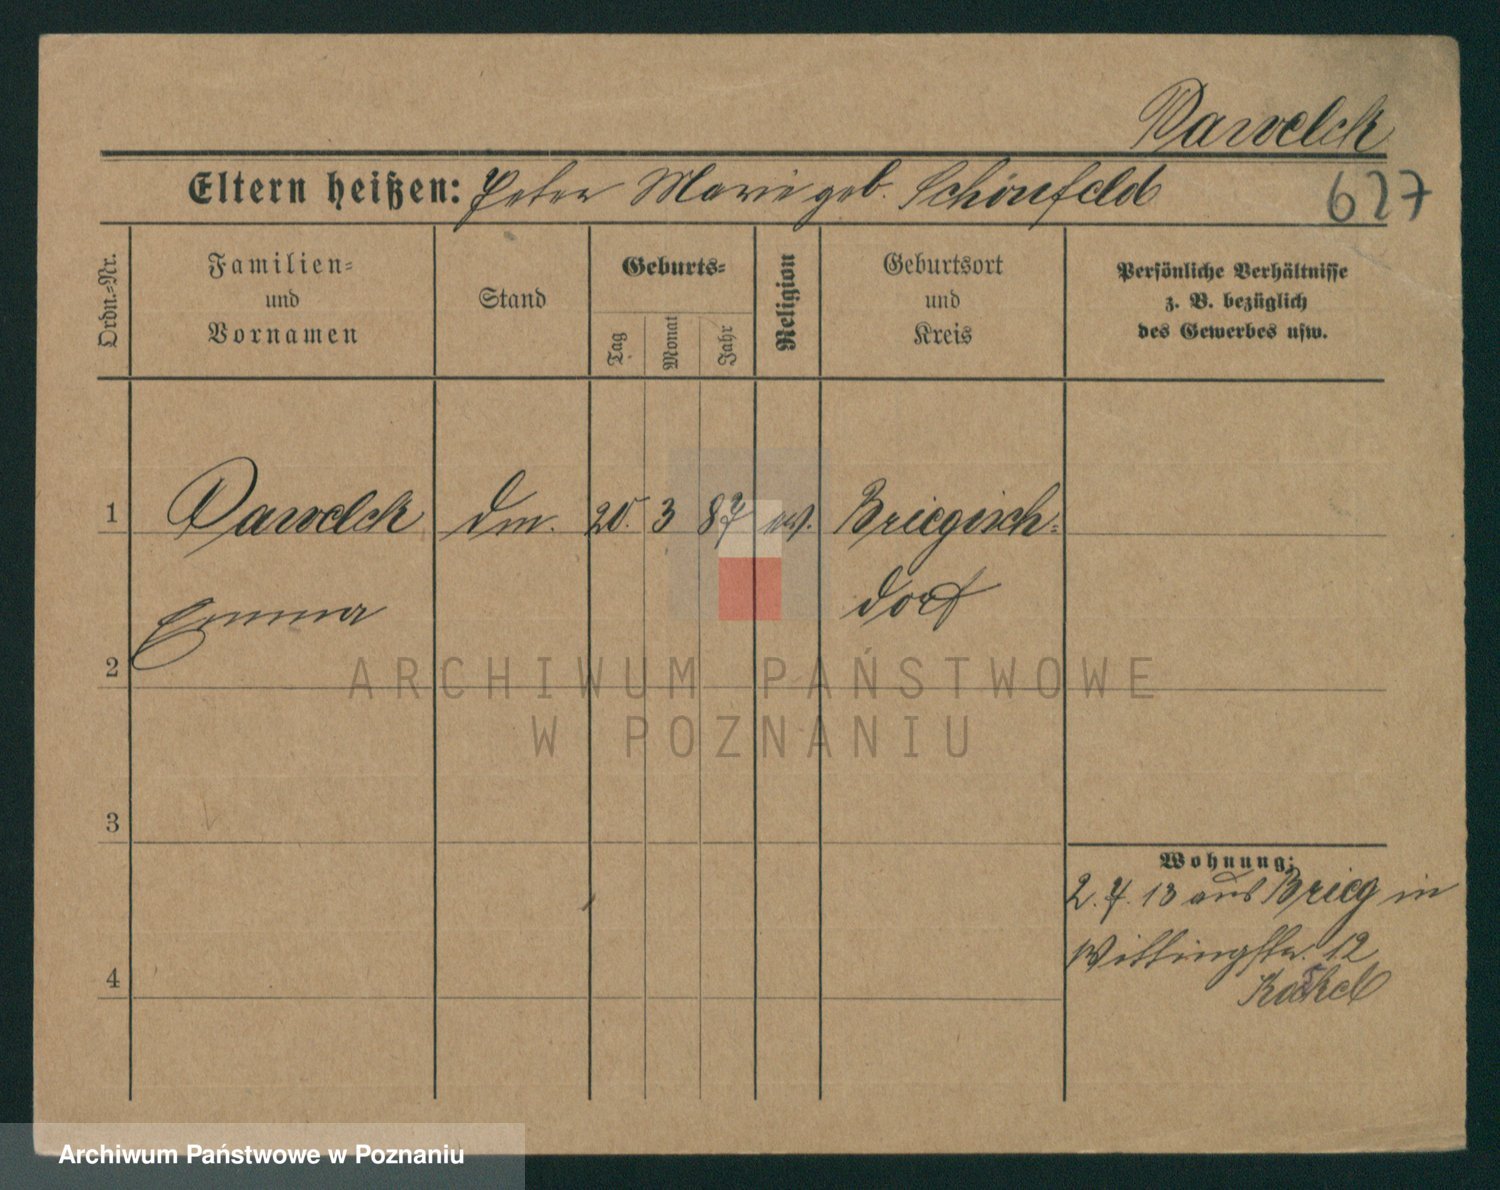 Pawelck
Eltern heißen: Peter Marie geb. Schönfeld
627
Ordn.-Nr.
Familien-
und
Vornamen
Stand
Geburts-
Tag
Monat
Jahr
Religion
Geburtsort
und
Kreis
Persönliche Verhältnisse
z. B. bezüglich
des Gewerbes usw.
1 Pawelck 20. 3 87 ev. Briegisch-
Emma dorf
2
ARCHIWUM PAŃSTWOWE
W POZNANIU
3
Wohnung:
2. 7. 13 aus Brieg in
12
4
Archiwum Państwowe w Poznaniu